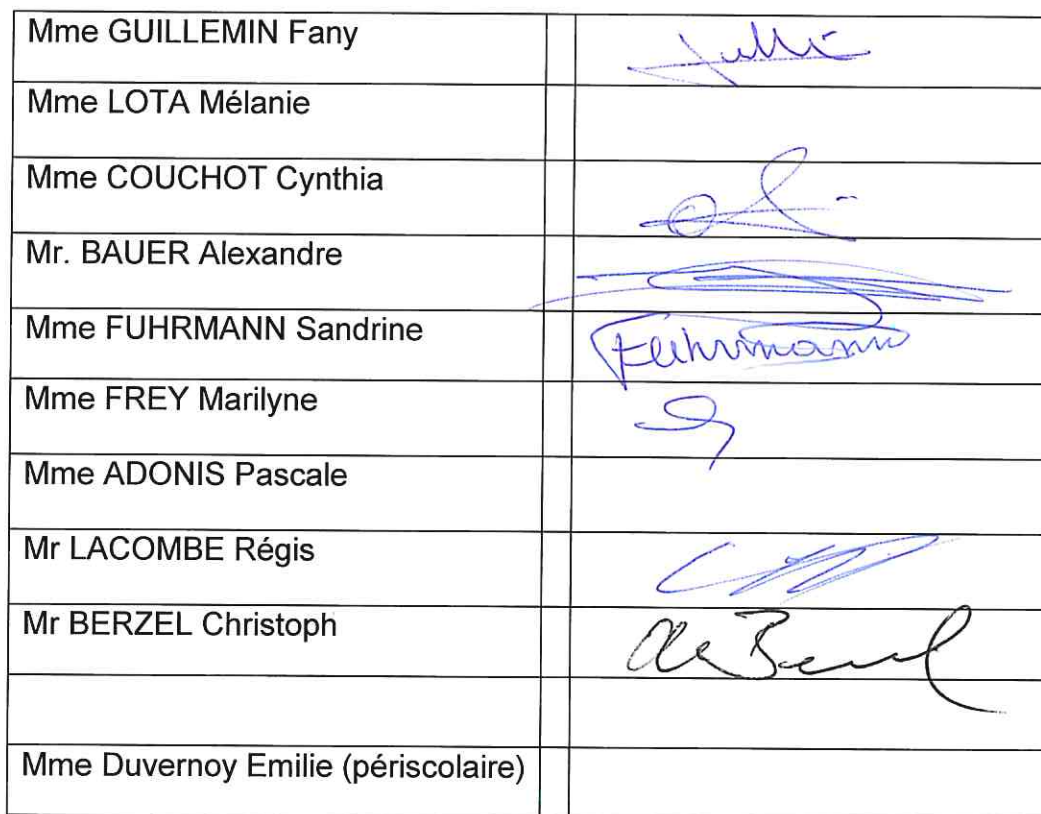 Mme GUILLEMIN Fany
Mme LOTA Mélanie
Mme COUCHOT Cynthia
Mr. BAUER Alexandre
Mme FUHRMANN Sandrine
Fuhrmann
Mme FREY Marilyne
Mme ADONIS Pascale
Mr LACOMBE Régis
Mr BERZEL Christoph
Mme Duvernoy Emilie (périscolaire)